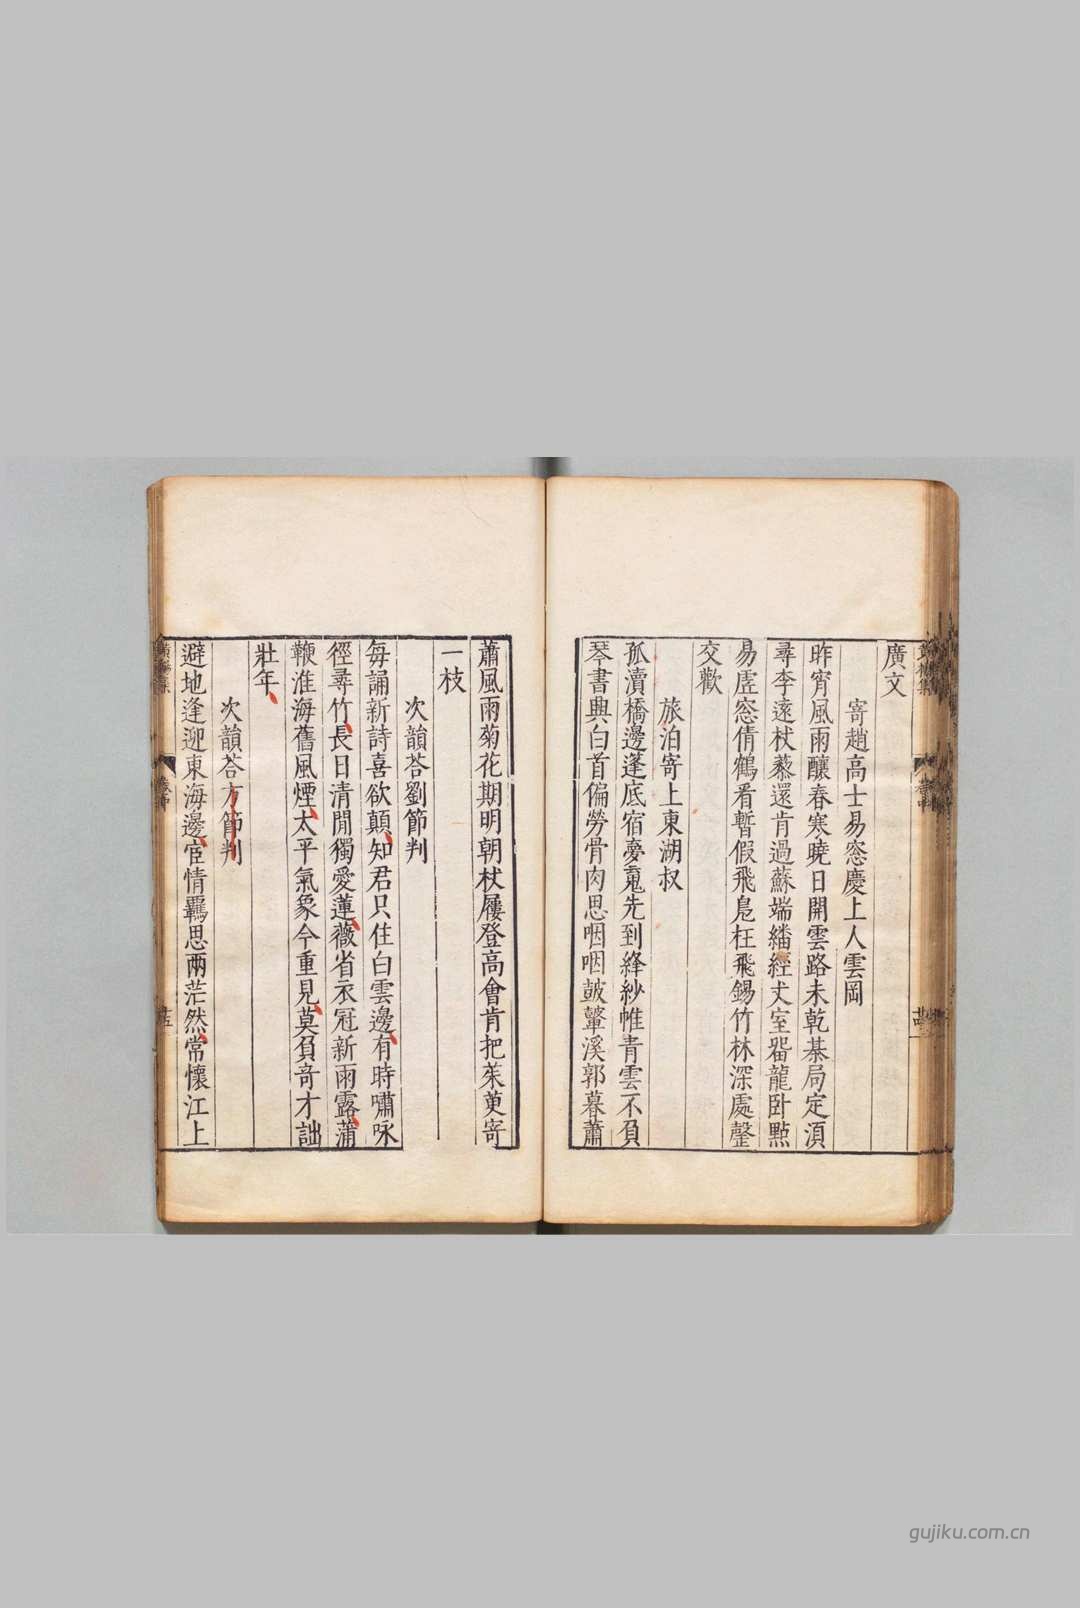 廣文
寄趙高士易窓慶上人雲岡
昨宵風雨釀春寒曉日開雲路未乾棊局定湏
尋李遠杖藜還肯過蘇端繙經丈室畱龍卧㸃
易虗窓倩鶴看暫假飛鳧枉飛錫竹林深處罄
交歡
旅泊寄上東湖叔
孤瀆橋邊蓬底宿夣䰟先到絳紗帷青雲不負
琴書興白首偏勞骨肉思咽咽鼓鼙溪郭暮蕭
蕭風雨菊花期明朝杖屨登高會肯把茱萸寄
一枝
次韻荅劉節判
每誦新詩喜欲顛知君只住白雲邊有時嘯咏
徑尋竹長日清閒獨愛蓮薇省衣冠新雨露蒲
鞭淮海舊風煙太平氣象今重見莫負竒才詘
壯年
次韻荅方節判
避地逢迎東海邊宦情羈思兩茫然常懷江上
gujiku.com.cn